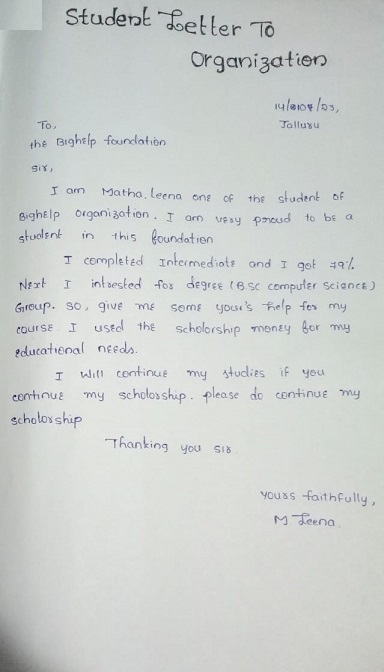 Student Letter To
Organization
14/0107/23,
Jallusu
To,
the Bighelp foundation
sir,
I am Matha. Leena one of the student of
Bighelp organization. I am very proud to be a
student in this foundation
I completed Intermediate and I got 79%
Next I intrested for degree (BSC computer science)
Group. so, give me some your's help for my
course I used the scholorship money for my
educational needs.
I will continue my studies if you
continue my scholorship. please do continue my
scholorship
Thanking you sir.
yours faithfully,
M. Leena.